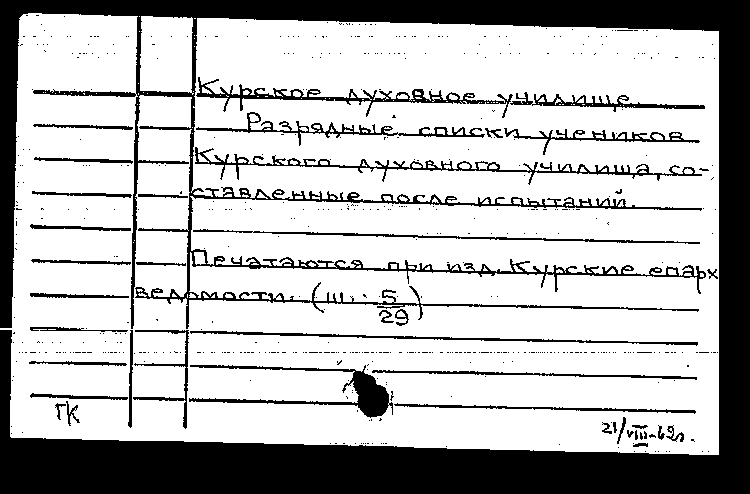 Курское духовное училище.
Разрядные списки учеников
Курского духовного училища, со-
ставленные после испытаний.
Печатаются при изд. Курские епарх
ведомости. (Ш. 5/29)
ГК
21/VIII-62г.